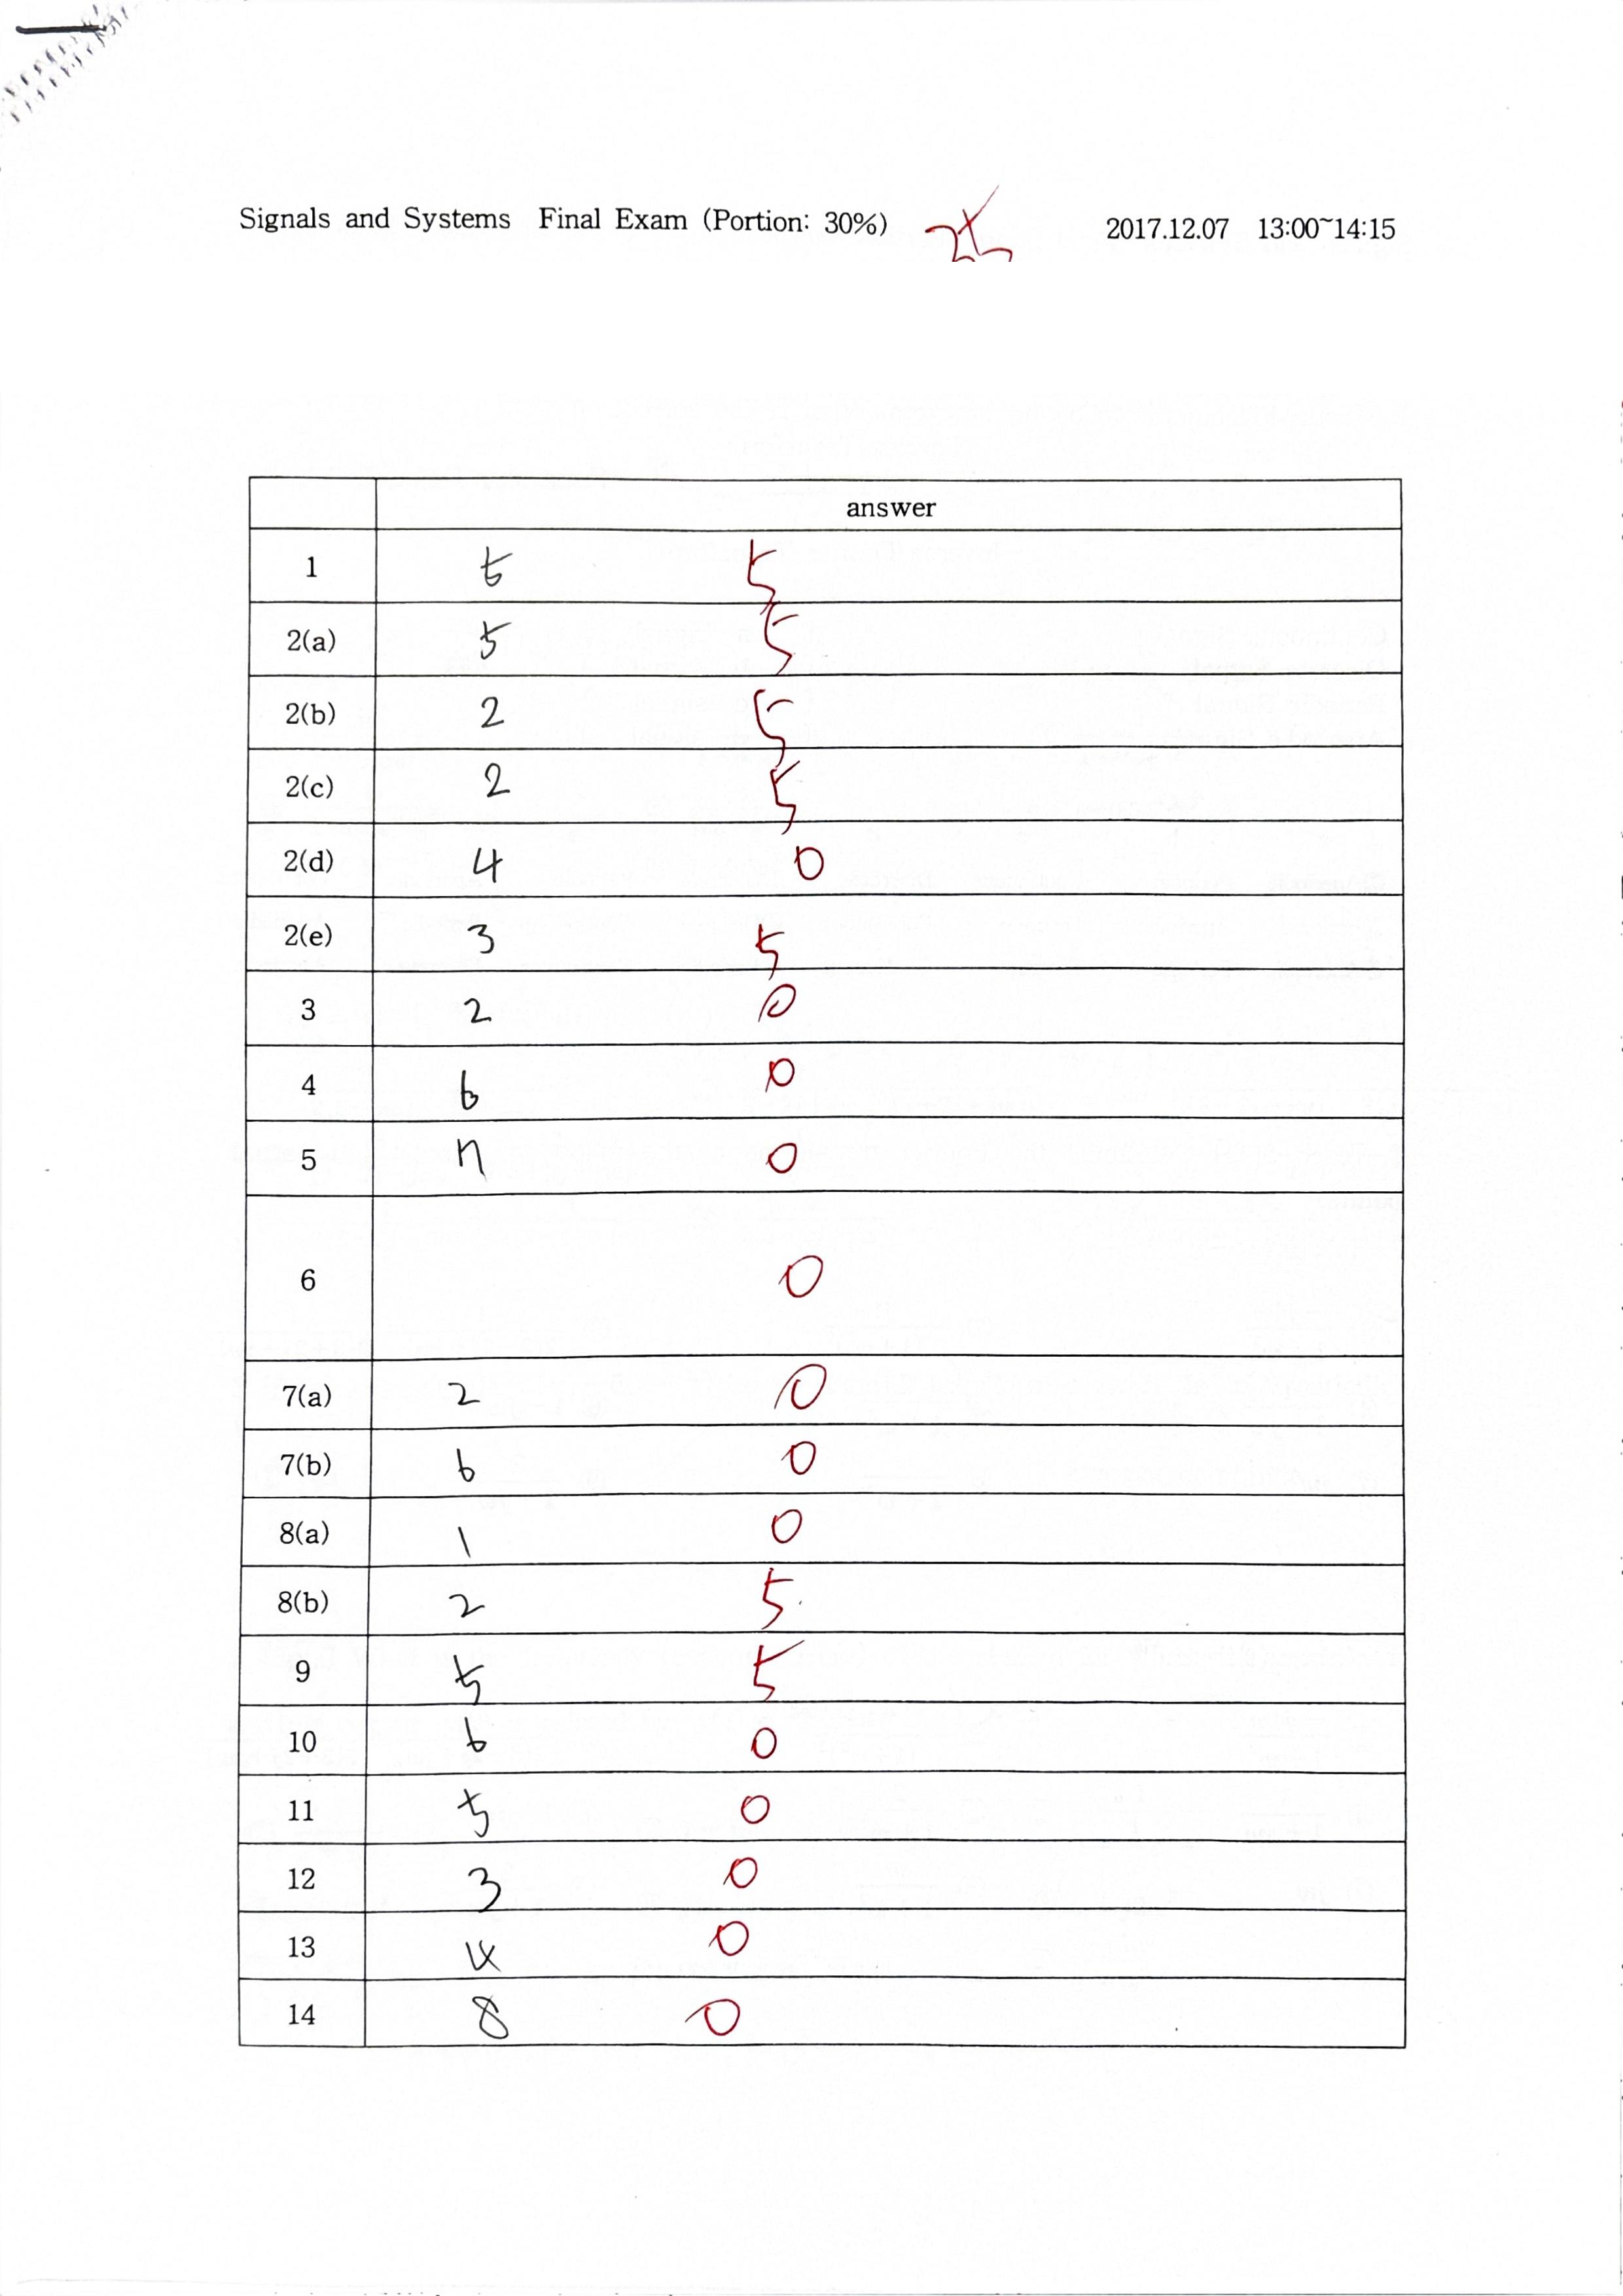 Signals and Systems Final Exam (Portion: 30%) 2017.12.07 13:00~14:15
answer
1 5 5
2(a) 5 5
2(b) 2 5
2(c) 2 5
2(d) 4 0
2(e) 3 5
3 2 0
4 6 0
5 n 0
6 0
7(a) 2 0
7(b) 6 0
8(a) 1 0
8(b) 2 5
9 5 5
10 6 0
11 5 0
12 3 0
13 4 0
14 8 0